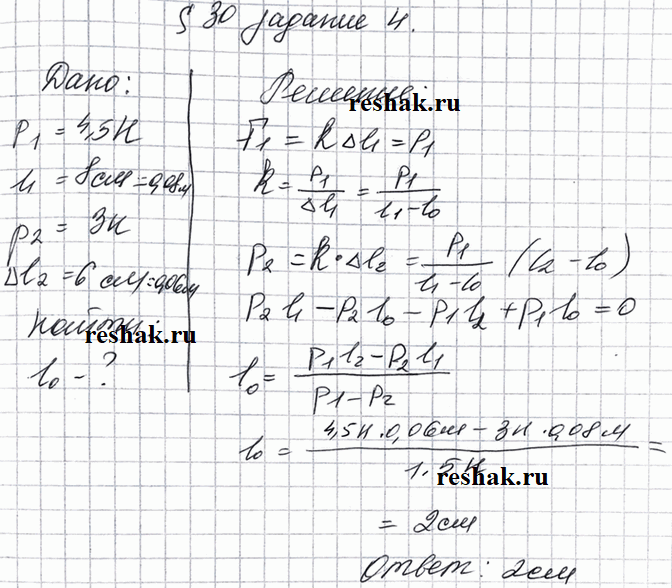 § 30 задание 4.
Дано:
P1 = 4,5Н
l1 = 8см=0,08м
P2 = 3Н
Δl2 = 6 см=0,06м
Найти:
reshak.ru
l0 - ?
Решение:
reshak.ru
F1 = k Δl1 = P1
k = P1/Δl1 = P1/l1-l0
P2 = k·Δl2 = P1/l1-l0 (l2 - l0)
P2 l1 - P2 l0 - P1 l2 + P1 l0 = 0
l0 = P1 l2 - P2 l1/P1 - P2
l0 = 4,5Н·0,06м - 3Н·0,08м/1.5Н =
reshak.ru
= 2см
Ответ: 2см